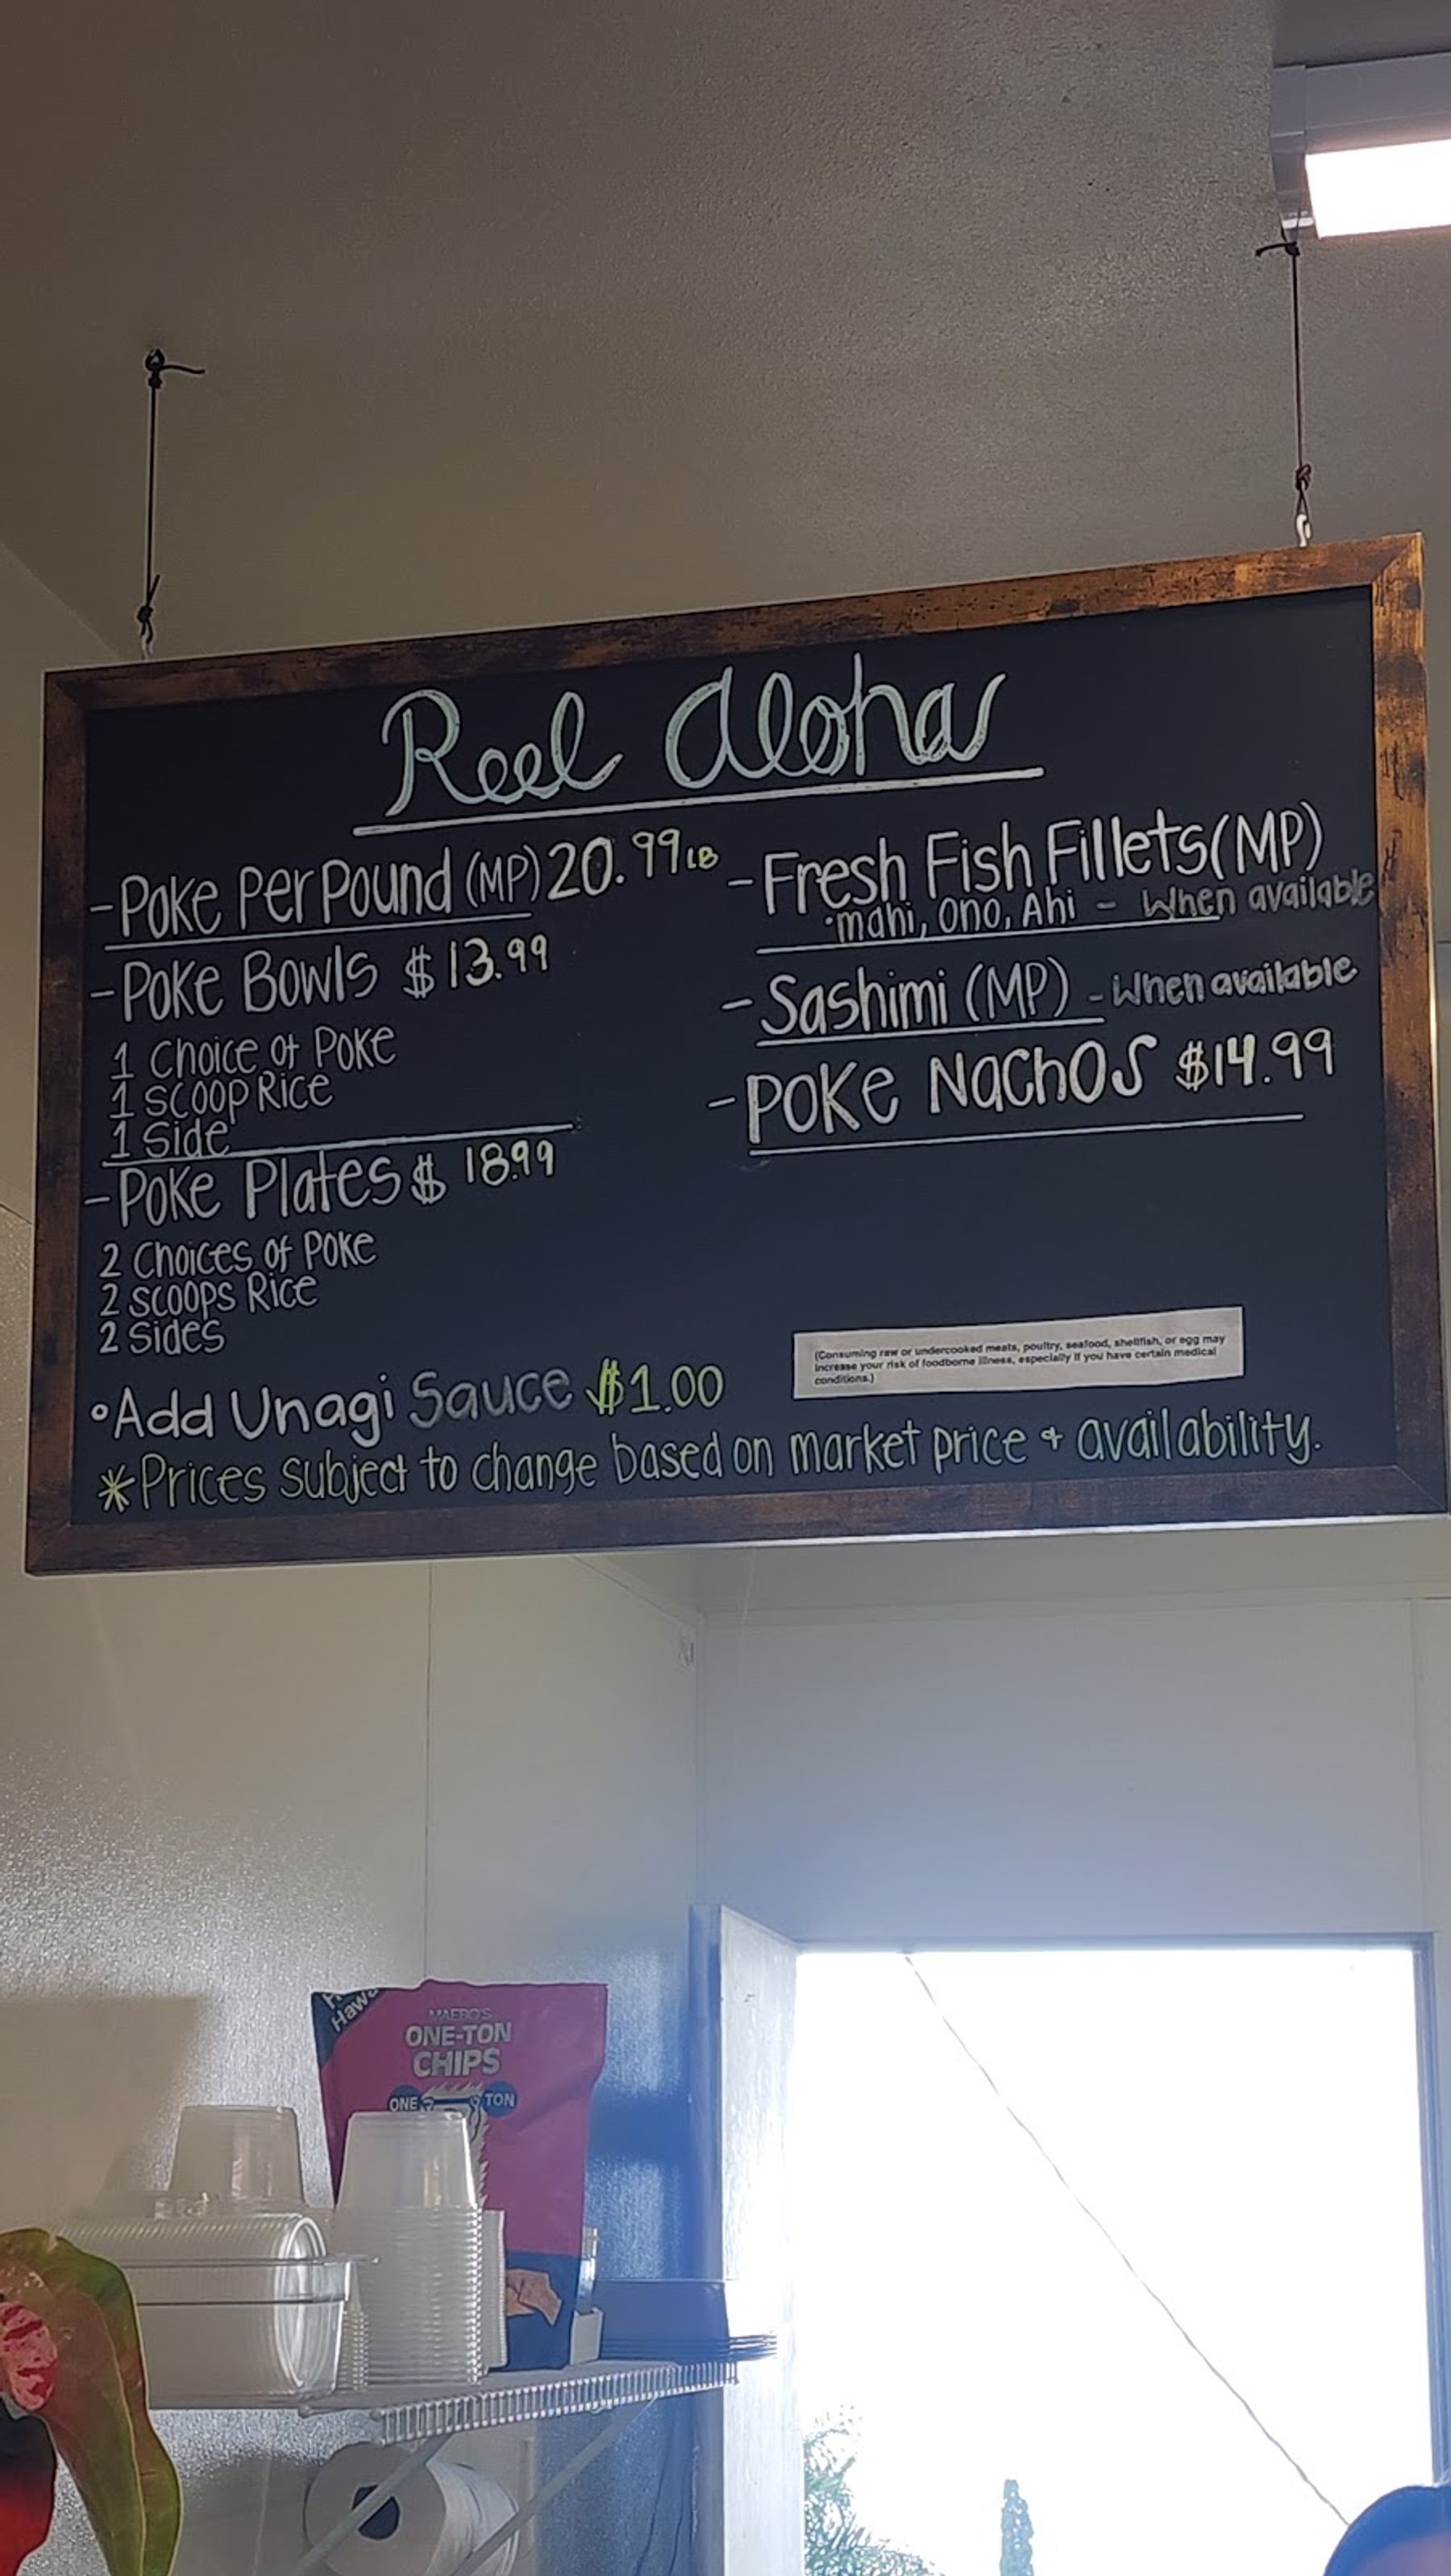 Reel Aloha
-Poke Per Pound (MP) 20.99 LB
-Poke Bowls $13.99
1 Choice of Poke
1 Scoop Rice
1 Side
-Poke Plates $ 18.99
2 Choices of Poke
2 Scoops Rice
2 Sides
•Add Unagi Sauce $1.00
*Prices subject to change based on market price + availability.
-Fresh Fish Fillets (MP)
•mahi, Ono, Ahi - When available
-Sashimi (MP) - When available
-Poke Nachos $14.99
(Consuming raw or undercooked meats, poultry, seafood, shellfish, or egg may
increase your risk of foodborne illness, especially if you have certain medical
conditions.)
MAEBO'S
ONE-TON
CHIPS
ONE TON